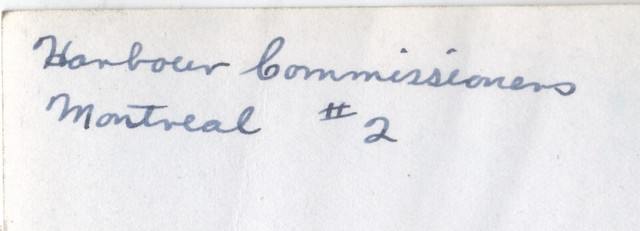 Harbour Commissioners
Montreal # 2